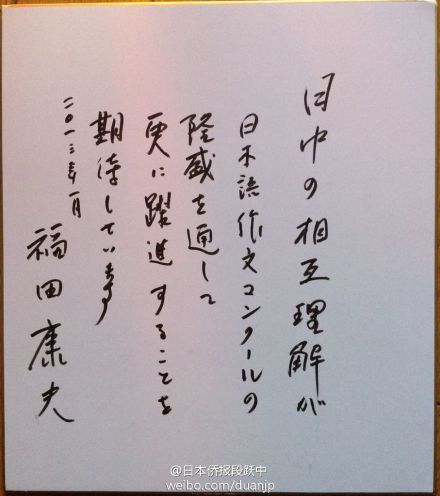 日中の相互理解が
日本語作文コンクールの
隆盛を通して
更に躍進することを
期待しています
二〇一三年一月
福田康夫
@日本侨报段跃中
weibo.com/duanjp